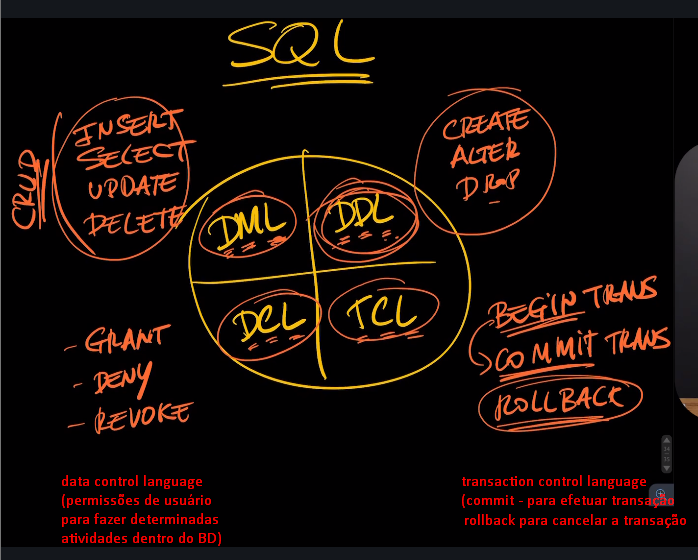 SQL
CRUD
INSERT
SELECT
UPDATE
DELETE
CREATE
ALTER
DROP
DML
DDL
DCL
TCL
- GRANT
- DENY
- REVOKE
BEGIN TRANS
COMMIT TRANS
ROLLBACK
data control language
(permissões de usuário
para fazer determinadas
atividades dentro do BD)
transaction control language
(commit - para efetuar transação
rollback para cancelar a transação